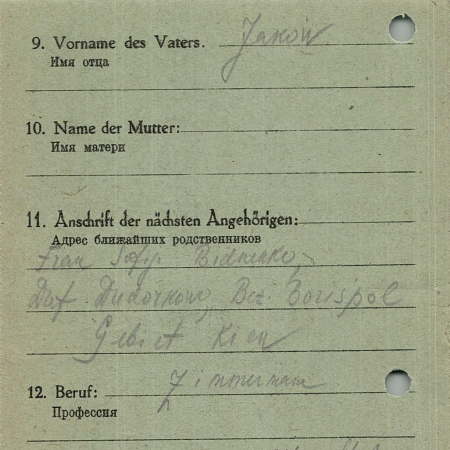 9. Vorname des Vaters. Jakow
Имя отца
10. Name der Mutter:
Имя матери
11. Anschrift der nächsten Angehörigen:
Адрес ближайших родственников
Frau Sofija
Dorf Dudorkow, Bez. Borispol
Gebiet Kiew
12. Beruf: Zimmermann
Профессия